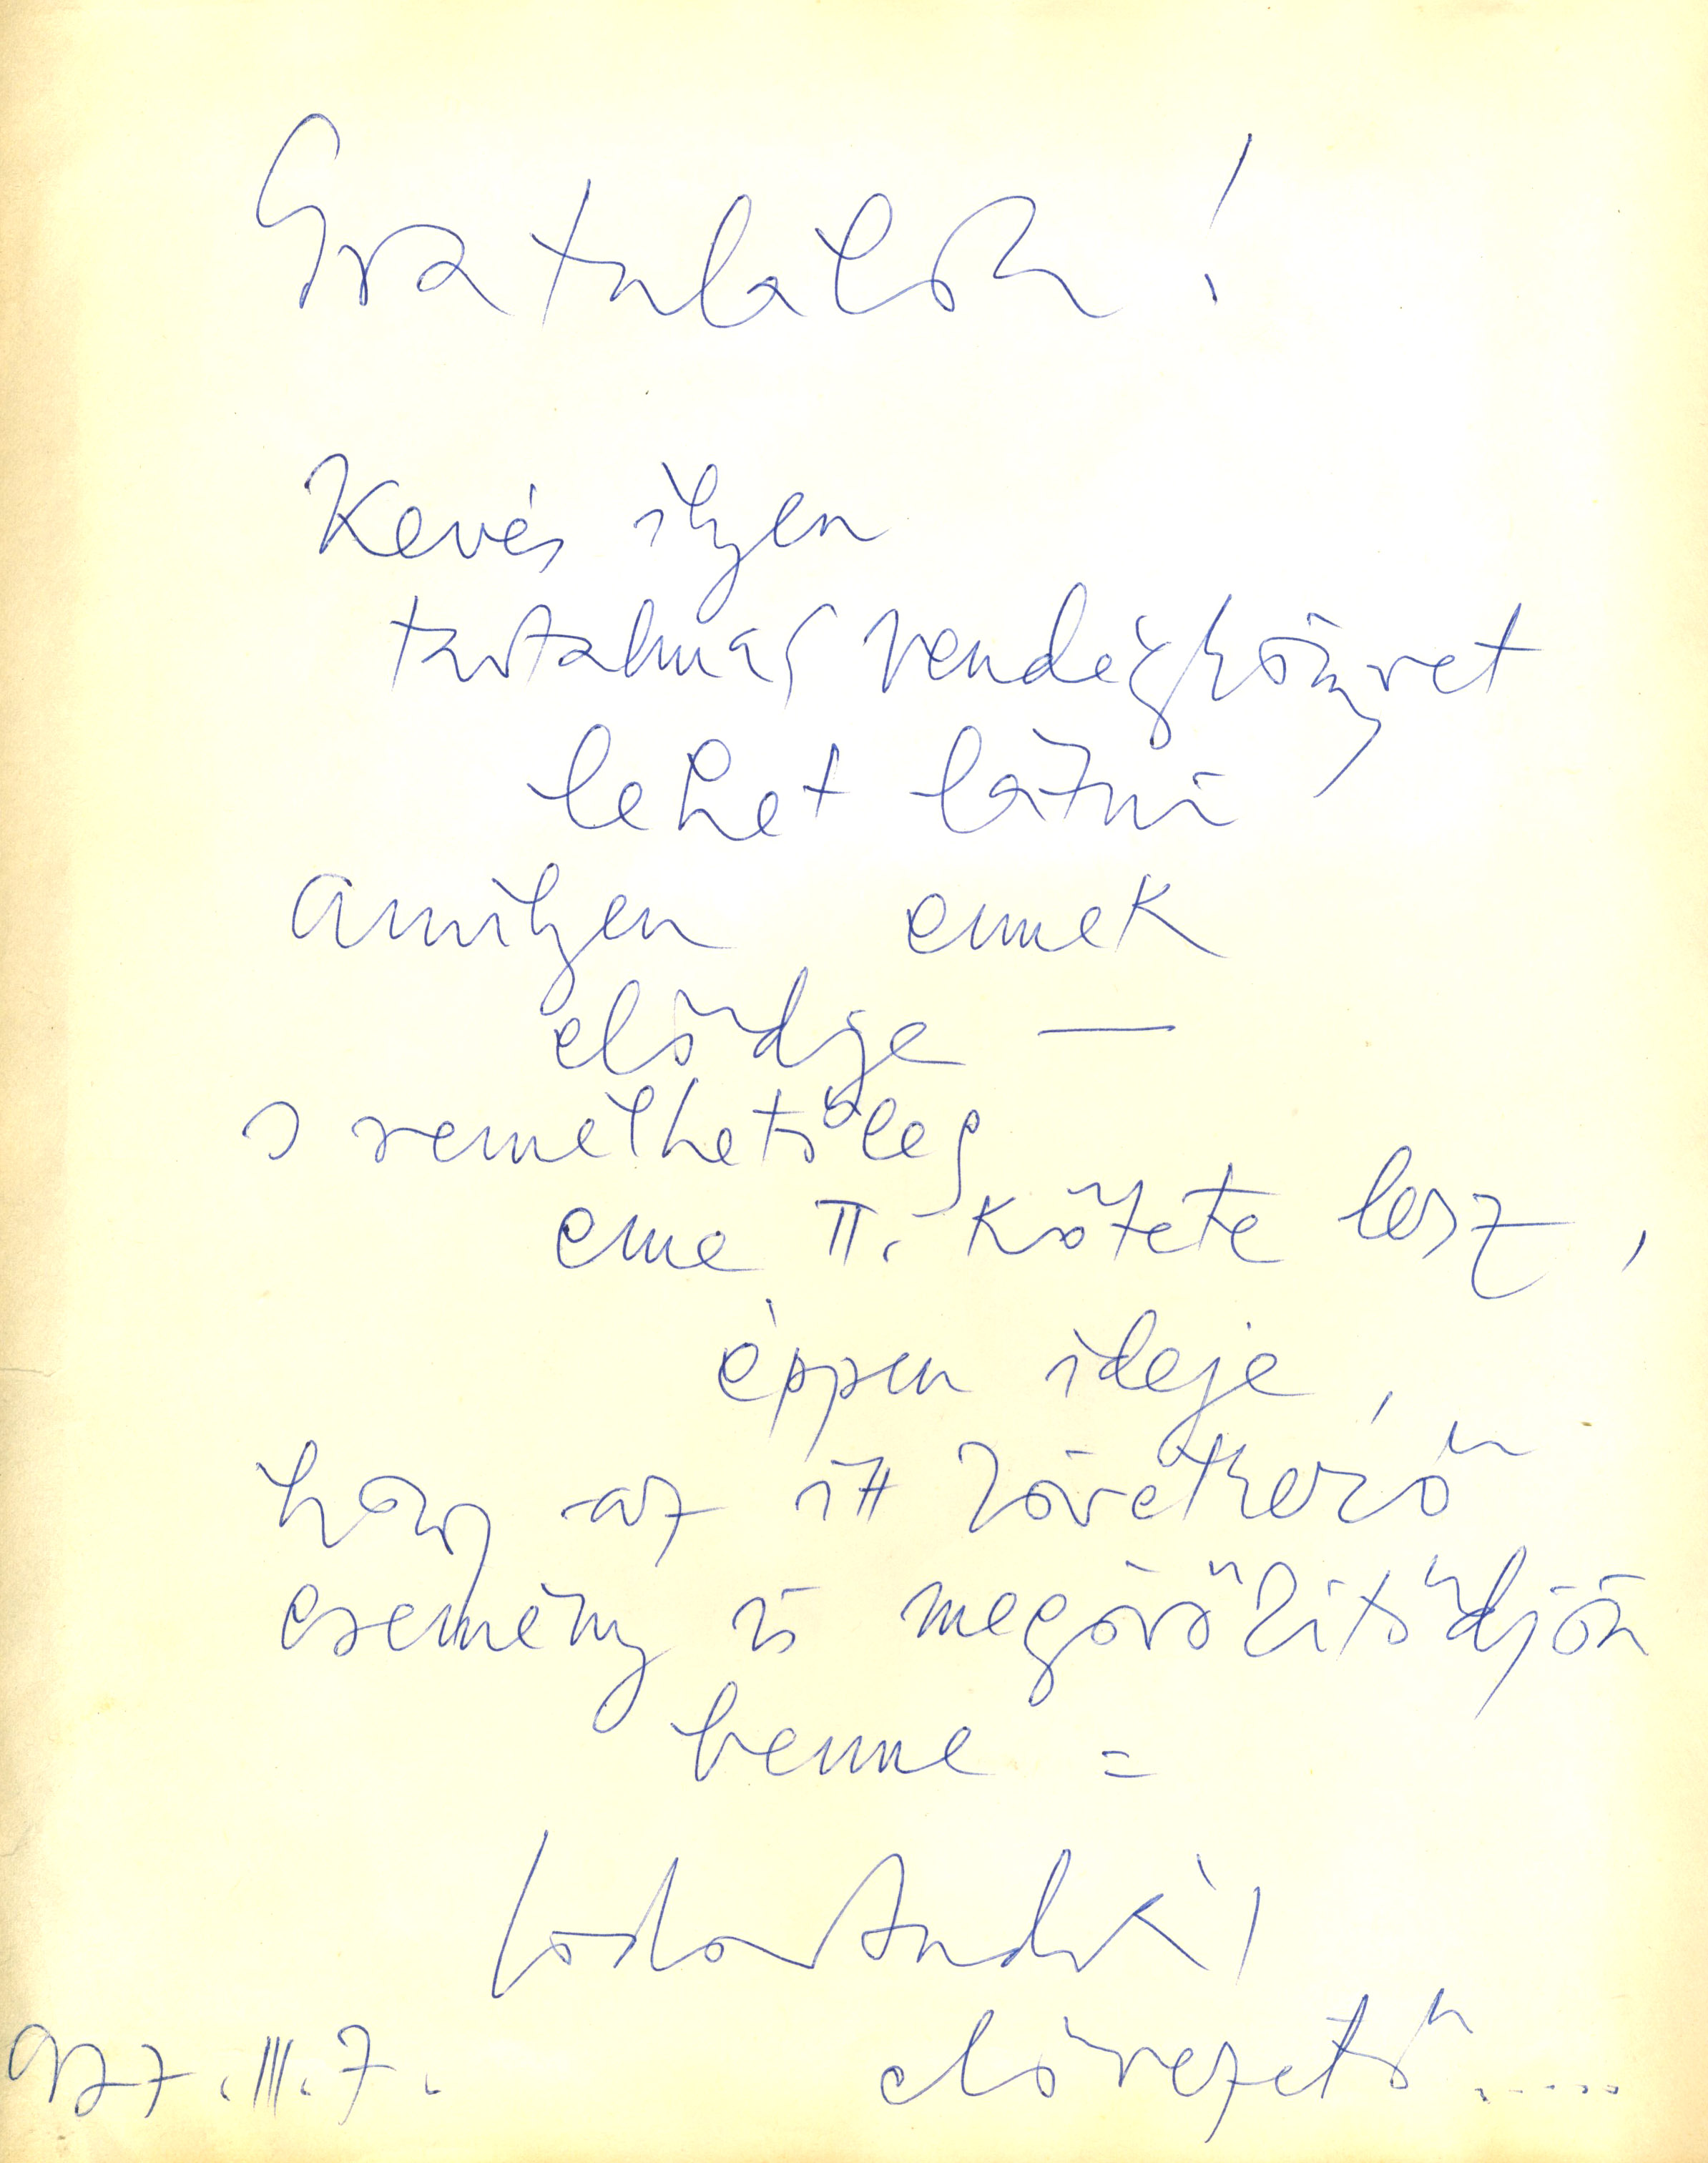 Gratulálok!
Kevés ilyen
tartalmas vendégkönyvet
lehet látni
amilyen ennek
elődje —
s remélhetőleg
eme II. kötete lesz,
éppen ideje,
hogy az itt következő
esemény is megörökítődjön
benne =
Fodor András
előverető.....
977.III.7.